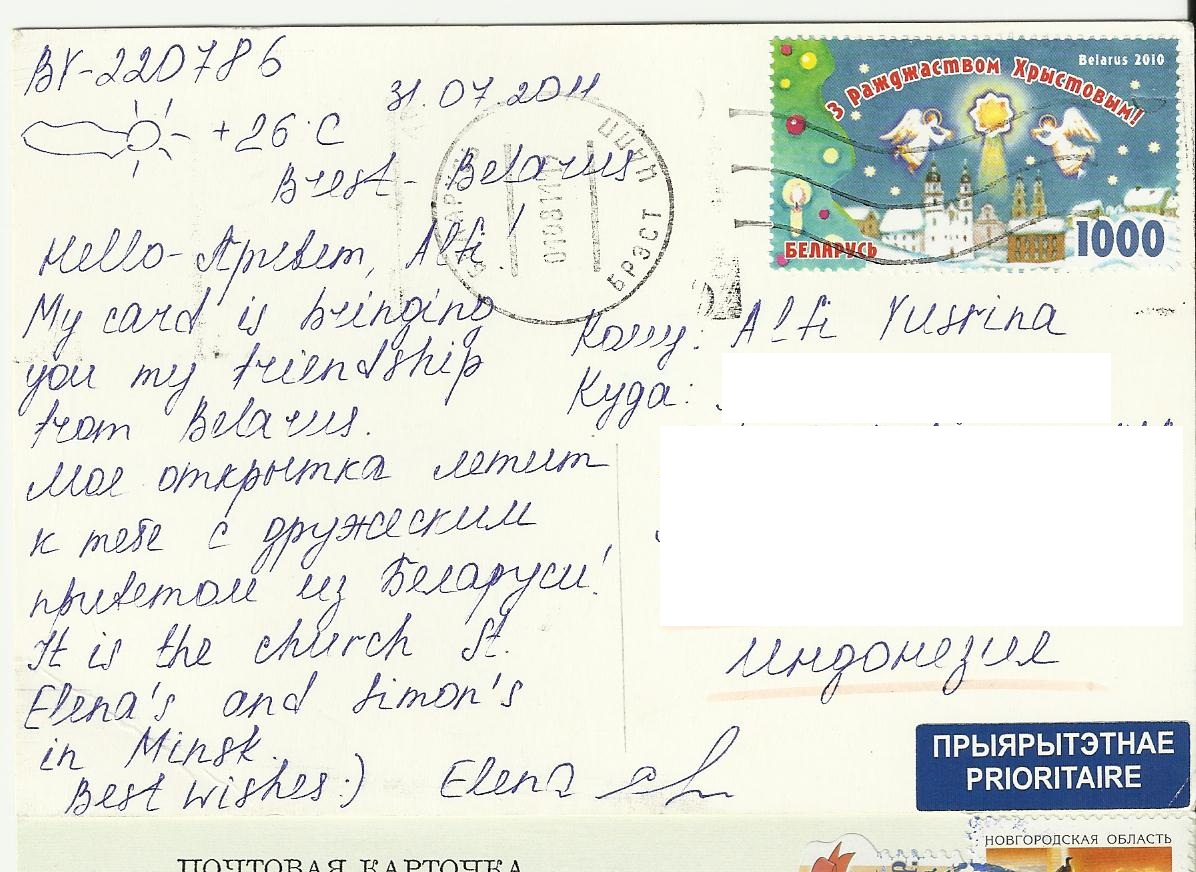 BY-220786
31.07.2011
+26°C
Brest - Belarus
Hello - Привет, Alfi!
My card is bringing
you my friendship
from Belarus.
Моя открытка летит
к тебе с дружеским
приветом из Беларуси!
It is the church St.
Elena's and Simon's
in Minsk.
Best wishes:) Elena
З Ражджаством Хрыстовым!
Belarus 2010
БЕЛАРУСЬ
1000
БРЭСТ
Кому: Alfi Yusrina
Куда:
Индонезия
ПРЫЯРЫТЭТНАЕ
PRIORITAIRE
ПОЧТОВАЯ КАРТОЧКА
НОВГОРОДСКАЯ ОБЛАСТЬ